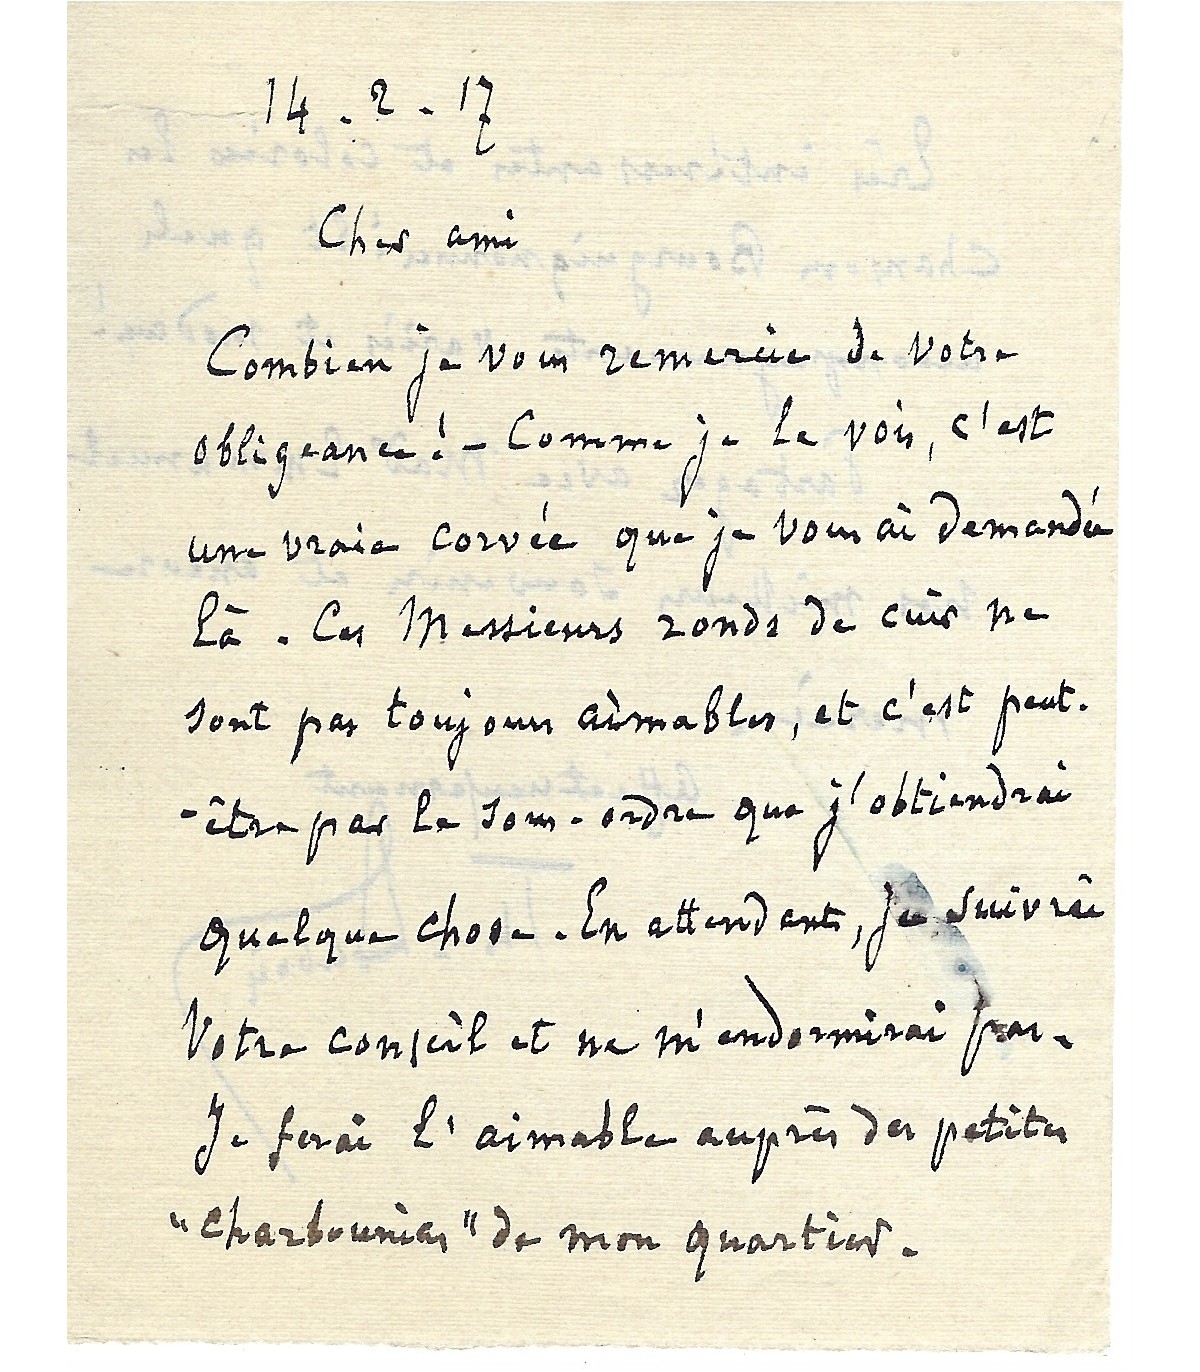 14 - 2 - 17
Cher ami
Combien je vous remercie de votre
obligeance ! - Comme je le vois, c'est
une vraie corvée que je vous ai demandée
là . Ces Messieurs ronds de cuir ne
sont pas toujours aimables, et c'est peut-
-être par le sous-ordre que j'obtiendrai
quelque chose . En attendant, je suivrai
votre conseil et ne m'endormirai pas.
Je ferai l'aimable auprès des petites
"charbounias" de mon quartier .